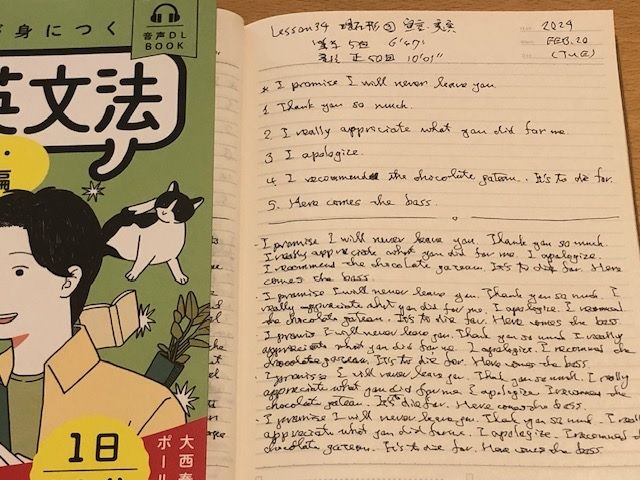 が身につく
音声DL
BOOK
英文法
編
1日
大西泰
ポール
Lesson 34 現在形③ 宣言・
5回 6'47"
50回 10'01"
2024
FEB. 20
(TUE)
* I promise I will never leave you.
1 Thank you so much.
2 I really appriciate what you did for me.
3 I apologize.
4 I recommend the chocolate gateau. It's to die for.
5. Here comes the bass.
I promise I will never leave you. Thank you so much.
I really appreciate what you did for me. I apologize.
I recommend the chocolate gateau. It's to die for. Here
comes the bass.
I promise I will never leave you. Thank you so much. I
really appriciate what you did for me. I apologize. I recommend
the chocolate gateau. It's to die for. Here comes the bass
I promis I will never leave you Thank you so much I really
appreciate what you did for me. I apologize. I recommend the
chocolate gateau. It's to die for. Here comes the bass
I promise I will never leave you. Thank you so much. I really
appreciate what you did for me I apologize I recommend the
chocolate gateau. It's die for. Here comes the bass.
I promise I will never leave you. Thank you so much. I really
appreciate what you did for me. I apologize. I recommend the
chocolate gateau. It's to die for. Here comes the bass